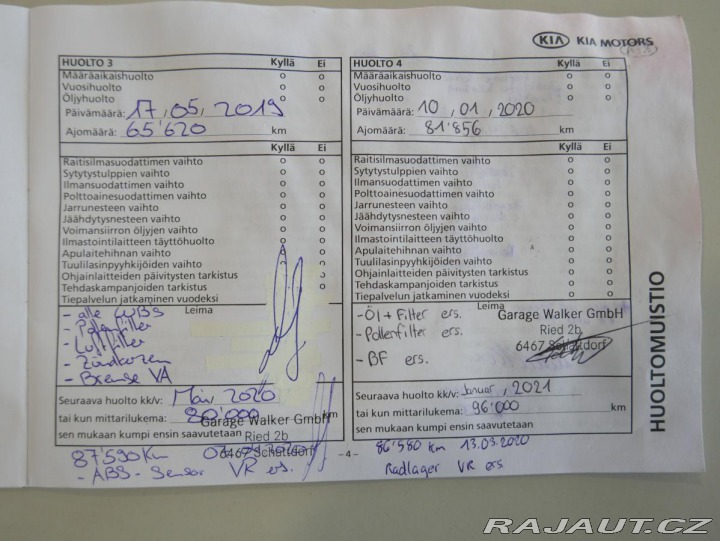 KIA KIA MOTORS
HUOLTO 3 Kyllä Ei
Määräaikaishuolto o o
Vuosihuolto o o
Öljyhuolto o o
Päivämäärä: 17.05.2019
Ajomäärä: 65'620 km
Kyllä Ei
Raitisilmasuodattimen vaihto o o
Sytytystulppien vaihto o o
Ilmansuodattimen vaihto o o
Polttoainesuodattimen vaihto o o
Jarrunesteen vaihto o o
Jäähdytysnesteen vaihto o o
Voimansiirron öljyjen vaihto o o
Ilmastointilaitteen täyttöhuolto o o
Apulaitehihnan vaihto o o
Tuulilasinpyyhkijöiden vaihto o o
Ohjainlaitteiden päivitysten tarkistus o o
Tehdaskampanjoiden tarkistus o
Tiepalvelun jatkaminen vuodeksi
Leima
- alle
- Pollenfilter
- Luftfilter
- Zündkerzen
- Bremse VA
Seuraava huolto kk/v: 2020
tai kun mittarilukema: 80'000 km
Garage Walker GmbH
sen mukaan kumpi ensin saavutetaan
Ried 2b
6467 Schattdorf
87'590 km
- ABS-Sensor VR ers.
HUOLTO 4 Kyllä Ei
Määräaikaishuolto o o
Vuosihuolto o o
Öljyhuolto o o
Päivämäärä: 10.01.2020
Ajomäärä: 81'856 km
Kyllä Ei
Raitisilmasuodattimen vaihto o o
Sytytystulppien vaihto o o
Ilmansuodattimen vaihto o o
Polttoainesuodattimen vaihto o o
Jarrunesteen vaihto o o
Jäähdytysnesteen vaihto o o
Voimansiirron öljyjen vaihto o o
Ilmastointilaitteen täyttöhuolto o o
Apulaitehihnan vaihto o o
Tuulilasinpyyhkijöiden vaihto o o
Ohjainlaitteiden päivitysten tarkistus o o
Tehdaskampanjoiden tarkistus o o
Tiepalvelun jatkaminen vuodeksi o o
Leima
- Öl + Filter ers.
- Pollenfilter ers.
- BF ers.
Garage Walker GmbH
Ried 2b
6467 Schattdorf
Seuraava huolto kk/v: Januar, 2021
tai kun mittarilukema: 96'000 km
sen mukaan kumpi ensin saavutetaan
86'580 km 13.03.2020
Radlager VR ers
-4-
HUOLTOMUISTIO
RAJAUT.CZ